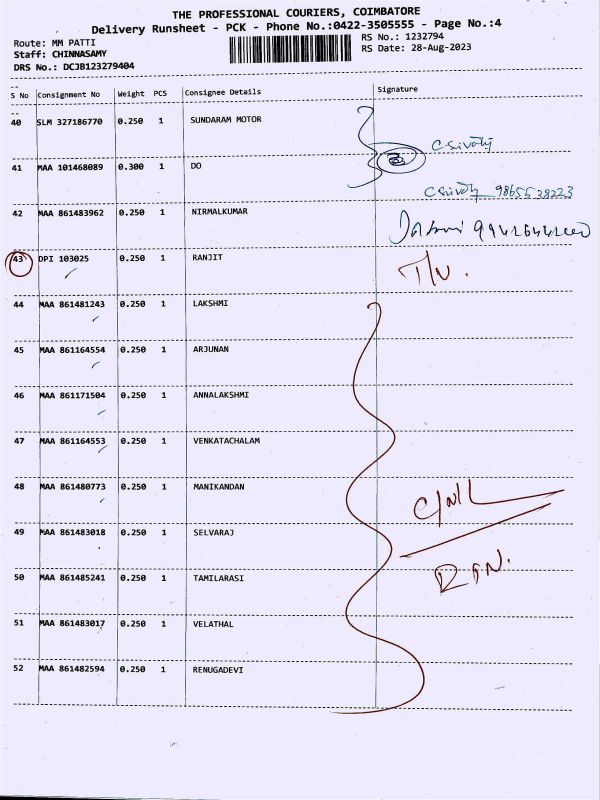 THE PROFESSIONAL COURIERS, COIMBATORE
Delivery Runsheet - PCK - Phone No.:0422-3505555 - Page No.:4
Route: MM PATTI
RS No.: 1232794
Staff: CHINNASAMY
RS Date: 28-Aug-2023
DRS No.: DCJB123279404
S No Consignment No Weight PCS Consignee Details Signature
40 SLM 327186770 0.250 1 SUNDARAM MOTOR
C Sivaly
41 MAA 101468089 0.300 1 DO
9865538223
42 MAA 861483962 0.250 1 NIRMALKUMAR
43 DPI 103025 0.250 1 RANJIT
44 MAA 861481243 0.250 1 LAKSHMI
45 MAA 861164554 0.250 1 ARJUNAN
46 MAA 861171504 0.250 1 ANNALAKSHMI
47 MAA 861164553 0.250 1 VENKATACHALAM
48 MAA 861480773 0.250 1 MANIKANDAN
49 MAA 861483018 0.250 1 SELVARAJ
50 MAA 861485241 0.250 1 TAMILARASI
51 MAA 861483017 0.250 1 VELATHAL
52 MAA 861482594 0.250 1 RENUGADEVI